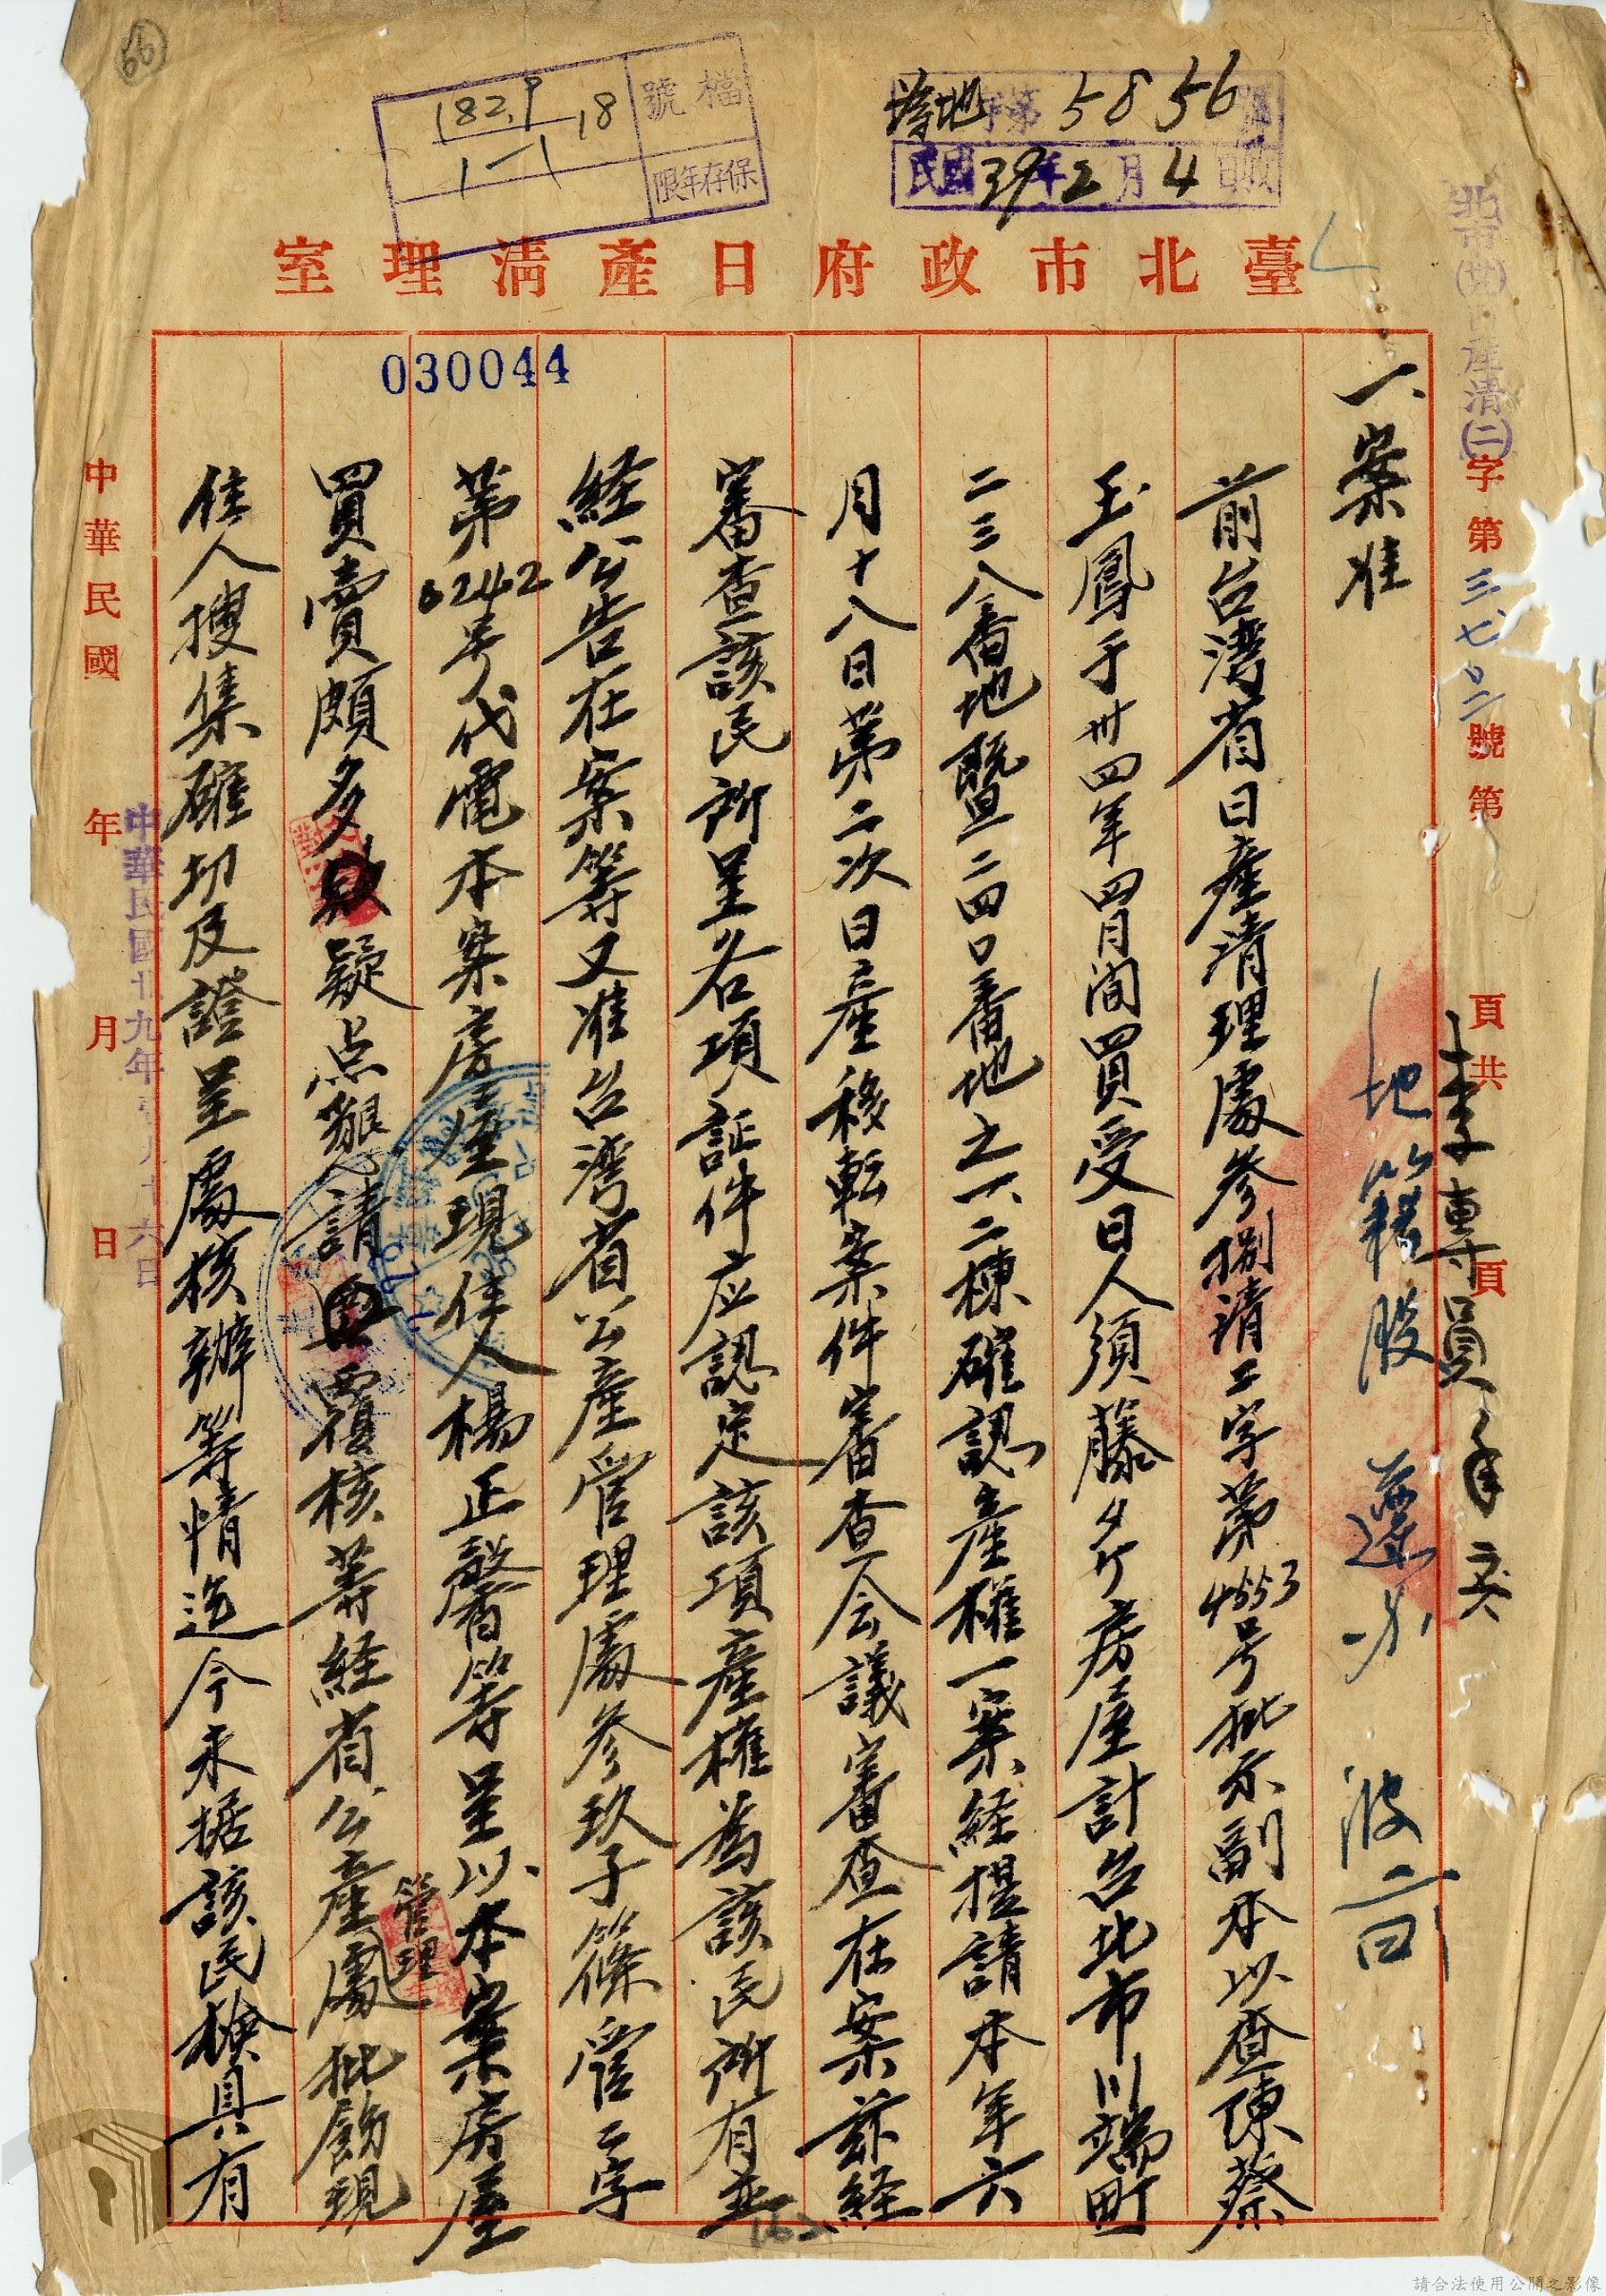 66
檔號
182.9
18
1-1
保存年限
5856
民國39年2月4日收
臺北市政府日產清理室
030044
產清(二)字第三七〇二號第 頁共 頁
李專員
地籍股
一、案准
前台湾省日產清理處參捌清二字第4553号批示副本以查陳蔡
玉鳳于卅四年四月间買受日人須藤夕ケ房屋計台北市川端町
二三八番地暨二四〇番地之一、二棟確認產權一案経提請本年六
月十八日第二次日產移転案件審查会議審查在案茲経
審查該民所呈各項証件应認定該項產權為該民所有並
経公告在案等又准台湾省公產管理處參玖子篠管二字
第0242号代電本案房屋現住人楊正馨等呈以本案房屋
買賣頗多疑点懇請覆核等経省公產管理處批飭現
住人搜集確切反證呈處核辦等情迄今未據該民檢具有
中華民國 年 月 日
中華民國卅九年 月十六日
請合法使用公開之影像